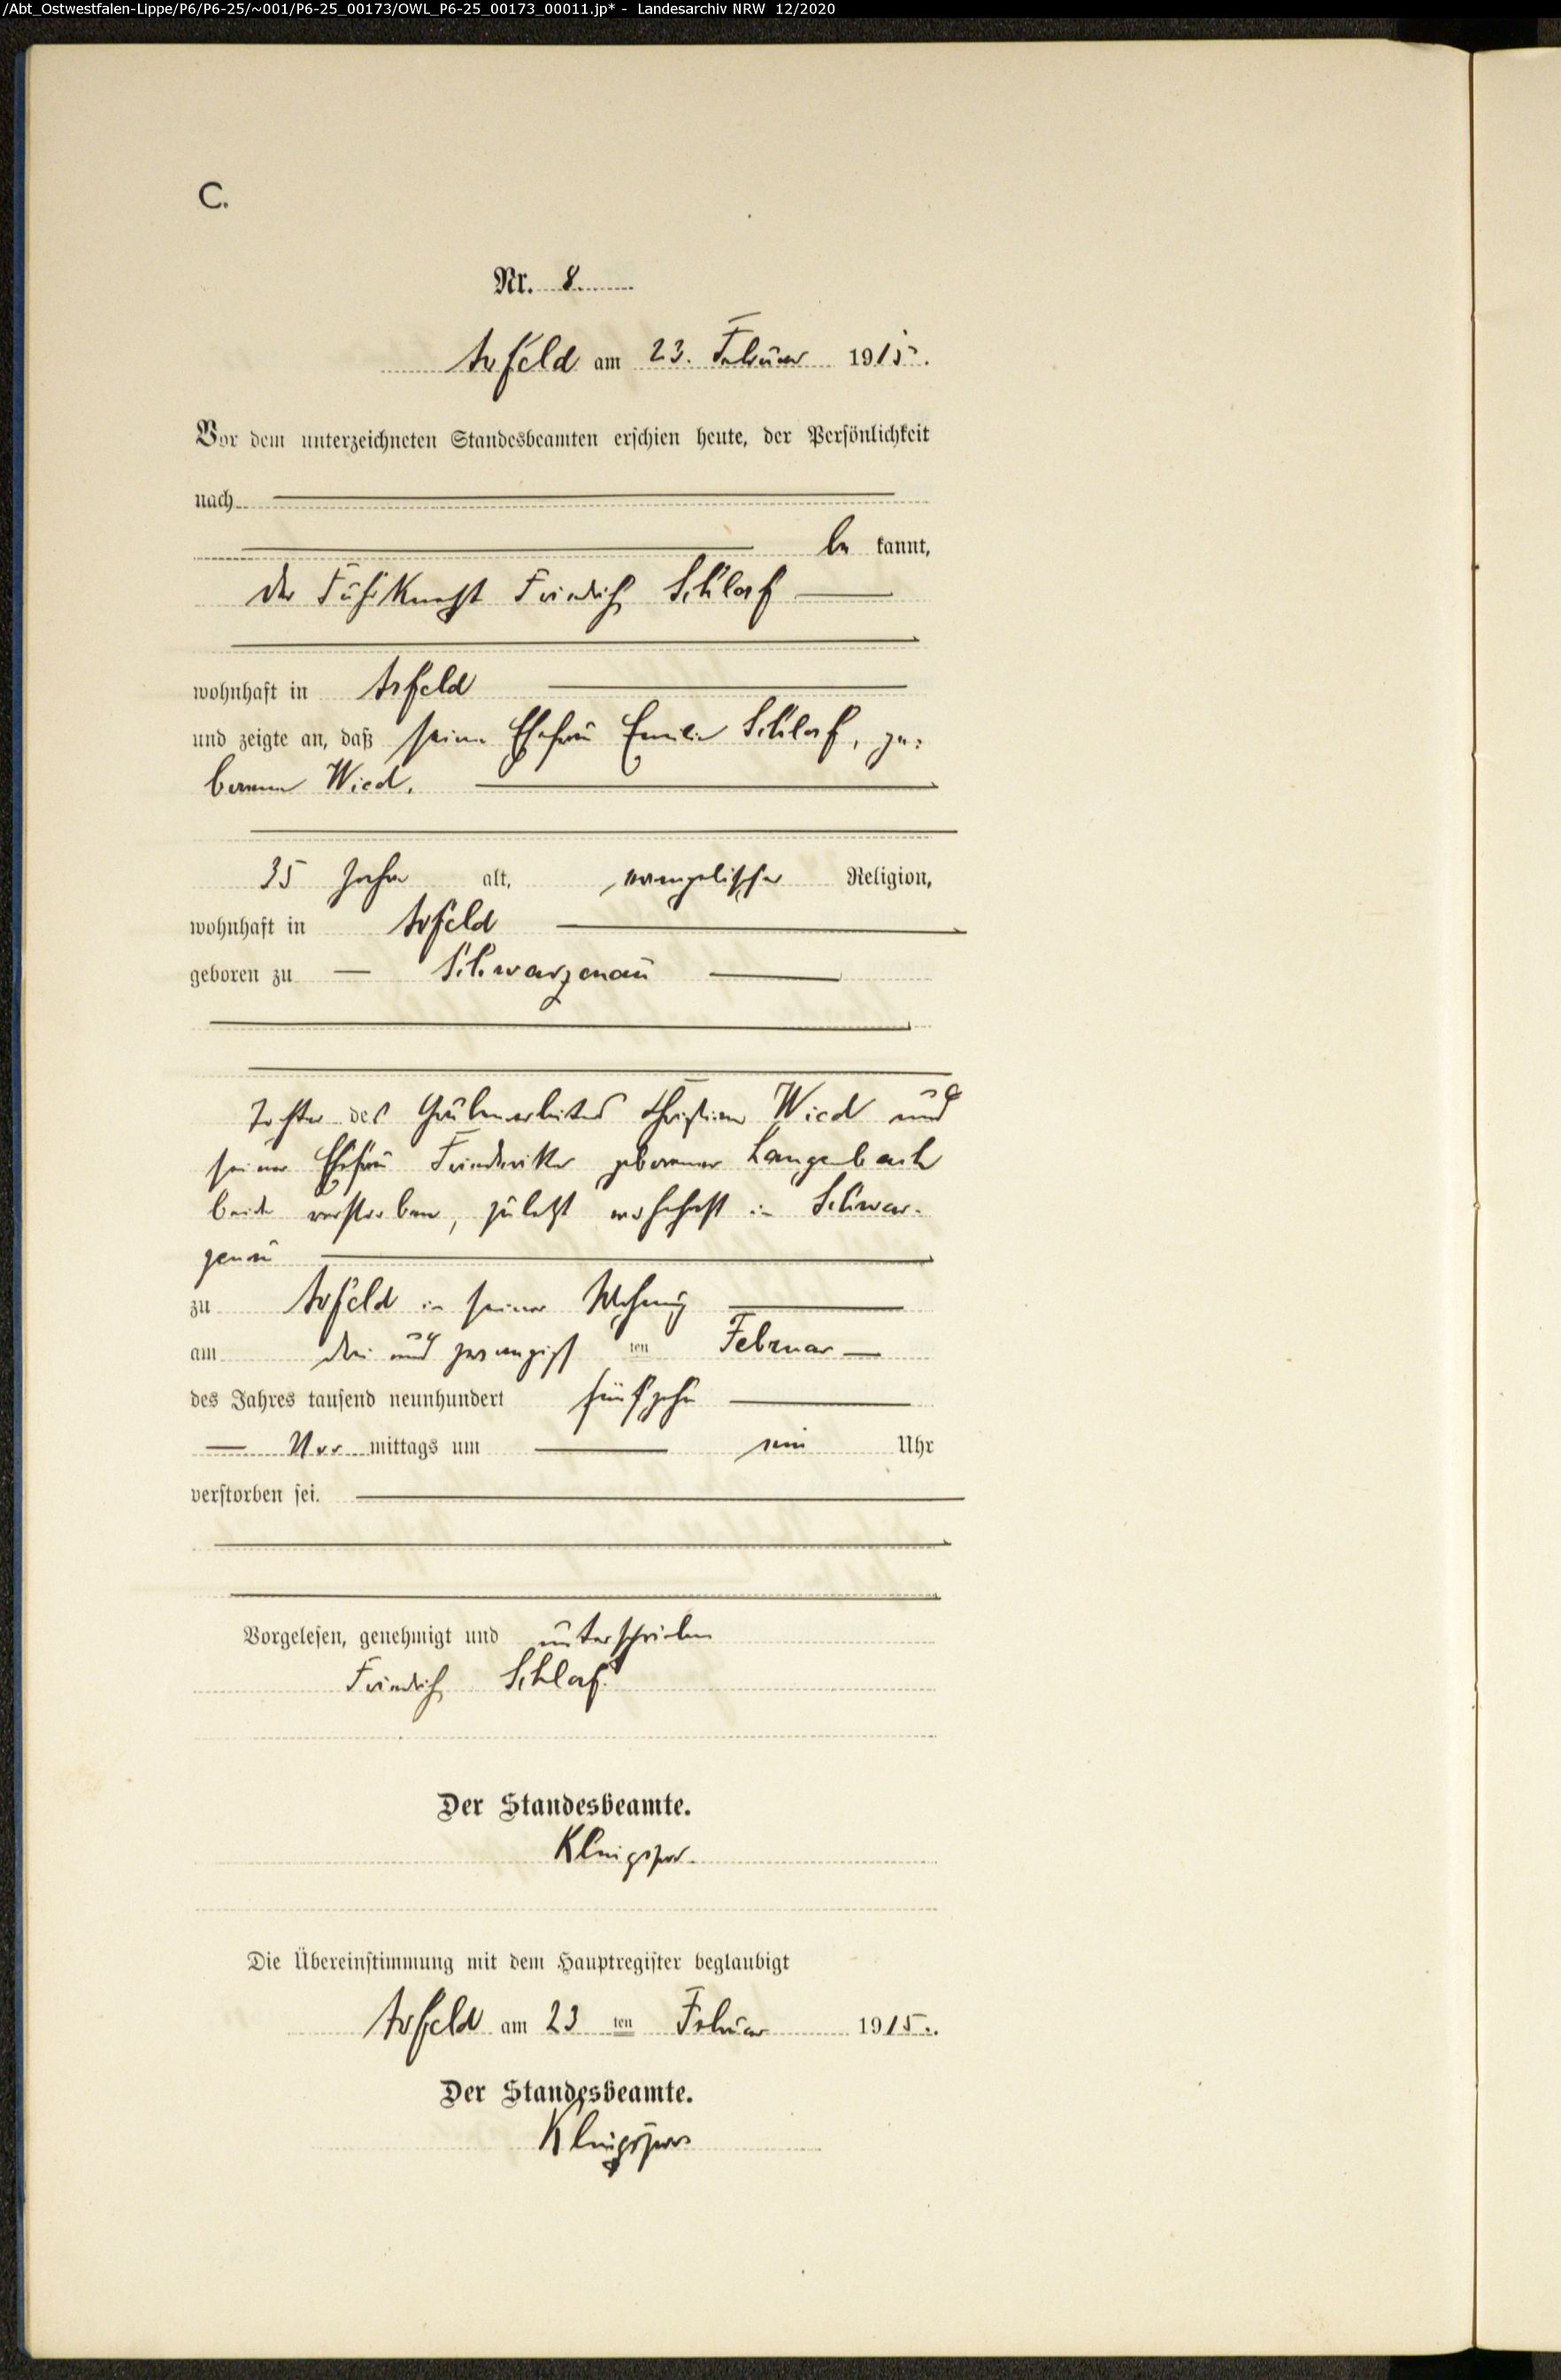 /Abt_Ostwestfalen-Lippe/P6/P6-25/~001/P6-25_00173/OWL_P6-25_00173_00011.jp* - Landesarchiv NRW 12/2020
C.
Nr. 8
Arfeld am 23. Februar 1915.
Vor dem unterzeichneten Standesbeamten erschien heute, der Persönlichkeit
nach
be kannt,
der Fuhrknecht Friedrich Schlaf
wohnhaft in Arfeld
und zeigte an, daß seine Ehefrau Emilie Schlaf, ge:
borene Wied.
35 Jahre alt, evangelischer Religion,
wohnhaft in Arfeld
geboren zu Schwarzenau
Tochter des Grubenarbeiters Christian Wied und
seiner Ehefrau Friederike geborener Langenbach
beide verstorben, zuletzt wohnhaft in Schwar-
zenau
zu Arfeld in seiner Wohnung
am drei und zwanzigst ten Februar
des Jahres tausend neunhundert fünfzehn
Vor mittags um ein Uhr
verstorben sei.
Vorgelesen, genehmigt und unterschrieben
Friedrich Schlaf.
Der Standesbeamte.
Die Übereinstimmung mit dem Hauptregister beglaubigt
Arfeld am 23 ten Februar 1915.
Der Standesbeamte.